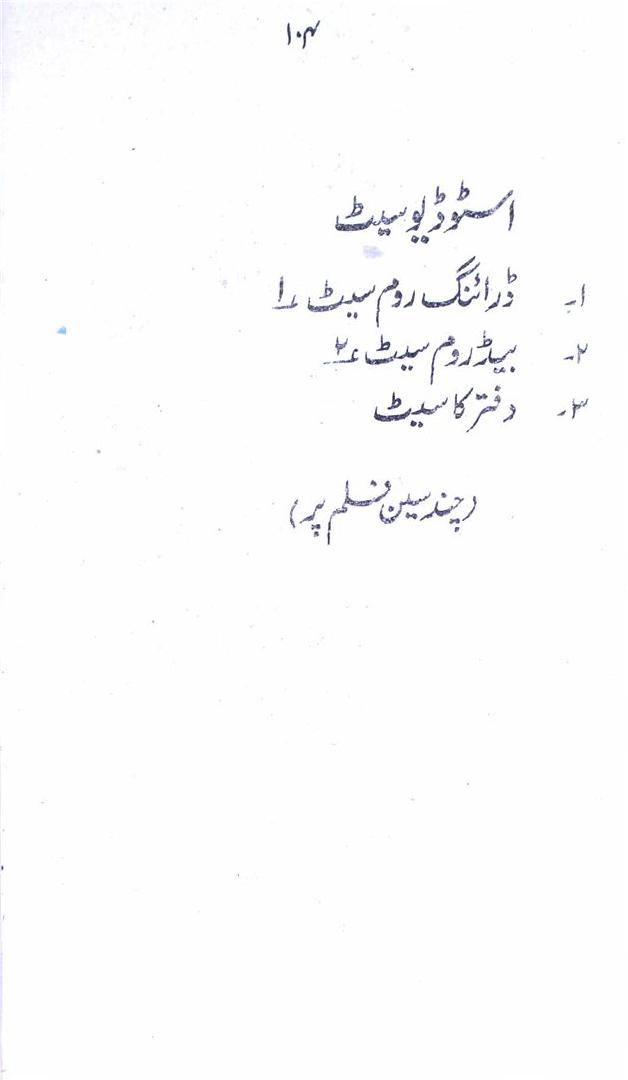 ۱۰۴
اسٹوڈیو سیٹ
۱۔ ڈرائنگ روم سیٹ ۱
۲۔ بیڈ روم سیٹ ۲
۳۔ دفتر کا سیٹ
(چند سین فلم پر)